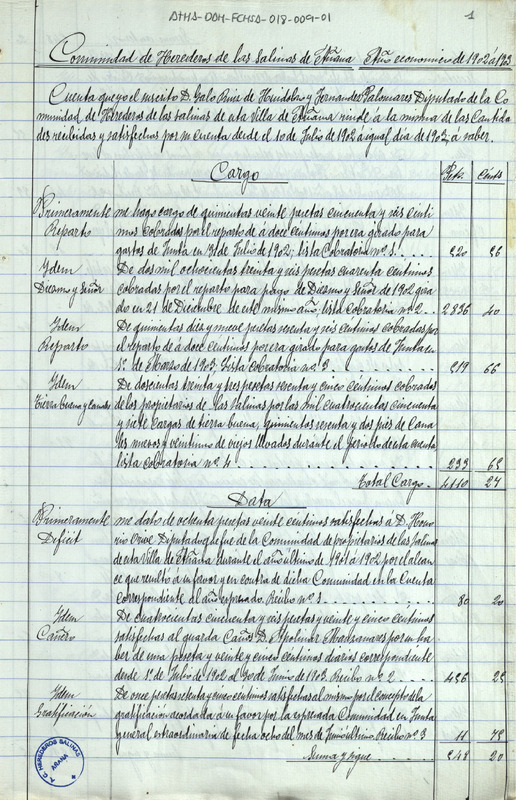 ATHA-DAH-FCHSA-018-009-01
1
Comunidad de Herederos de las Salinas de Añana Año economico de 1902 á 1903
Cuenta que yo el suscrito D. Galo de y Fernandez Palomares Diputado de la Co
munidad de Herederos de las Salinas de esta Villa de Añana rinde á la misma de las Cantida
des recibidas y satisfechas por mi cuenta desde el 10 de Julio de 1902 á igual dia de 1903, á saber.
Cargo
Ptas. Cénts
Primeramente me hago cargo de quinientas veinte pesetas cincuenta y seis cénti
Reparto mos cobradas por el reparto de á doce centimos por era girado para
gastos de Junta en 31 de Julio de 1902; lista Cobratoria nº 1. 520 56
Ydem De dos mil ochocientas treinta y seis pesetas cuarenta centimos
Diezmo y Señor cobradas por el reparto para pago de Diezmo y Señor de 1902 gira
do en 21 de Diciembre de este mismo año, lista cobratoria nº 2. 2836 40
Ydem De quinientas diez y nueve pesetas sesenta y seis céntimos cobradas por
Reparto el reparto de á doce centimos por era girado para gastos de Junta en
1º de Marzo de 1903. Lista Cobratoria nº 3 519 66
Ydem De doscientas treinta y tres pesetas sesenta y cinco céntimos cobradas
Tierra buena y canales de los propietarios de las Salinas por las mil cuatrocientas cincuenta
y siete Cargas de tierra buena, quinientos sesenta y dos piés de Cana
les nuevos y veintiuno de viejos llevados durante el periodo de esta cuenta
lista cobratoria nº 4 233 65
Total Cargo. 4110 27
Data
Primeramente me dato de ochenta pesetas veinte centimos satisfechas á D. Hono
Deficit rio Diputado que fue de la Comunidad de propietarios de las Salinas
de esta Villa de Añana durante el año último de 1901 á 1902 por el alcan
ce que resultó á su favor y en contra de dicha Comunidad en la Cuenta
correspondiente al año espresado. Recibo nº 1. 80 20
Ydem De cuatrocientas cincuenta y seis pesetas y veinte y cinco céntimos
Cañero satisfechas al guarda Caños D. Apolinar Manzanares por su ha
ber de una peseta y veinte y cinco centimos diarios correspondiente
desde 1º de Julio de 1902 al 30 de Junio de 1903. Recibo nº 2 456 25
Ydem De once pesetas setenta y cinco centimos satisfechas al mismo por el concepto de la
Gratificación gratificación acordada á su favor por la espresada Comunidad en Junta
general estraordinaria de fecha ocho del mes de Junio último. Recibo nº 3 11 75
Suma y sigue 548 20
T.C. HEREDEROS SALINAS
AÑANA